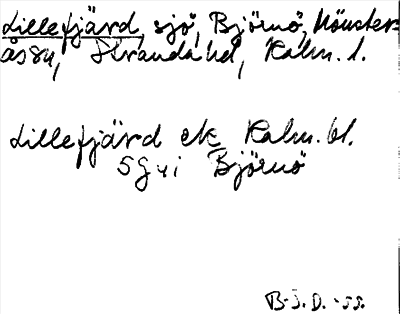 Lillefjärd, sjö, Björnö, Mönster-
åssn, Stranda hd, Kalm. l.
Lillefjärd ek Kalm. bl.
5G 4i Björnö
B-J. D. -55.